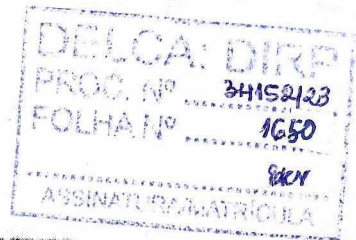 DELCA: DIRP
PROC. Nº 34152/23
FOLHA Nº 1650
ASSINATURA/MATRÍCULA